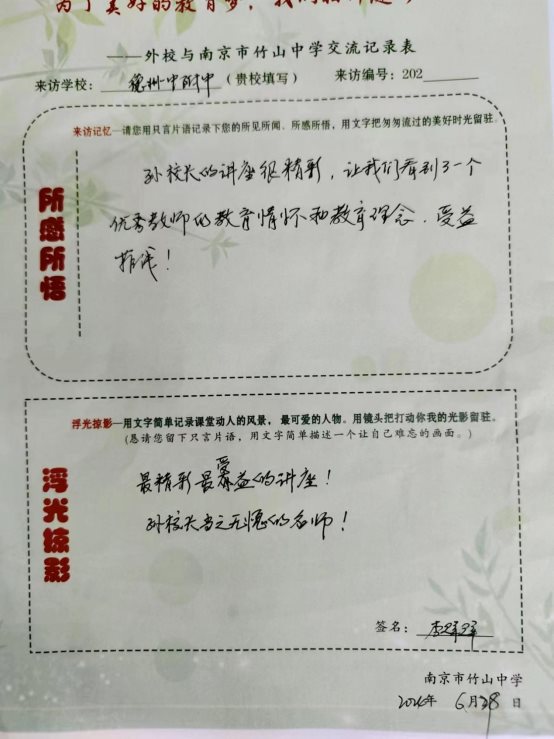 为了美好的教育梦，我们
——外校与南京市竹山中学交流记录表
来访学校：德州一中附中（贵校填写） 来访编号：202
来访记忆—请您用只言片语记录下您的所见所闻、所感所悟，用文字把匆匆流过的美好时光留驻。
所感所悟
孙校长的讲座很精彩，让我们看到了一个
优秀教师的教育情怀和教育理念，受益
匪浅！
浮光掠影—用文字简单记录课堂动人的风景，最可爱的人物。用镜头把打动你我的光影留驻。
（恳请您留下只言片语，用文字简单描述一个让自己难忘的画面。）
浮光掠影
最精彩最受益的讲座！
孙校长当之无愧的名师！
签名：李
南京市竹山中学
年 6月28日